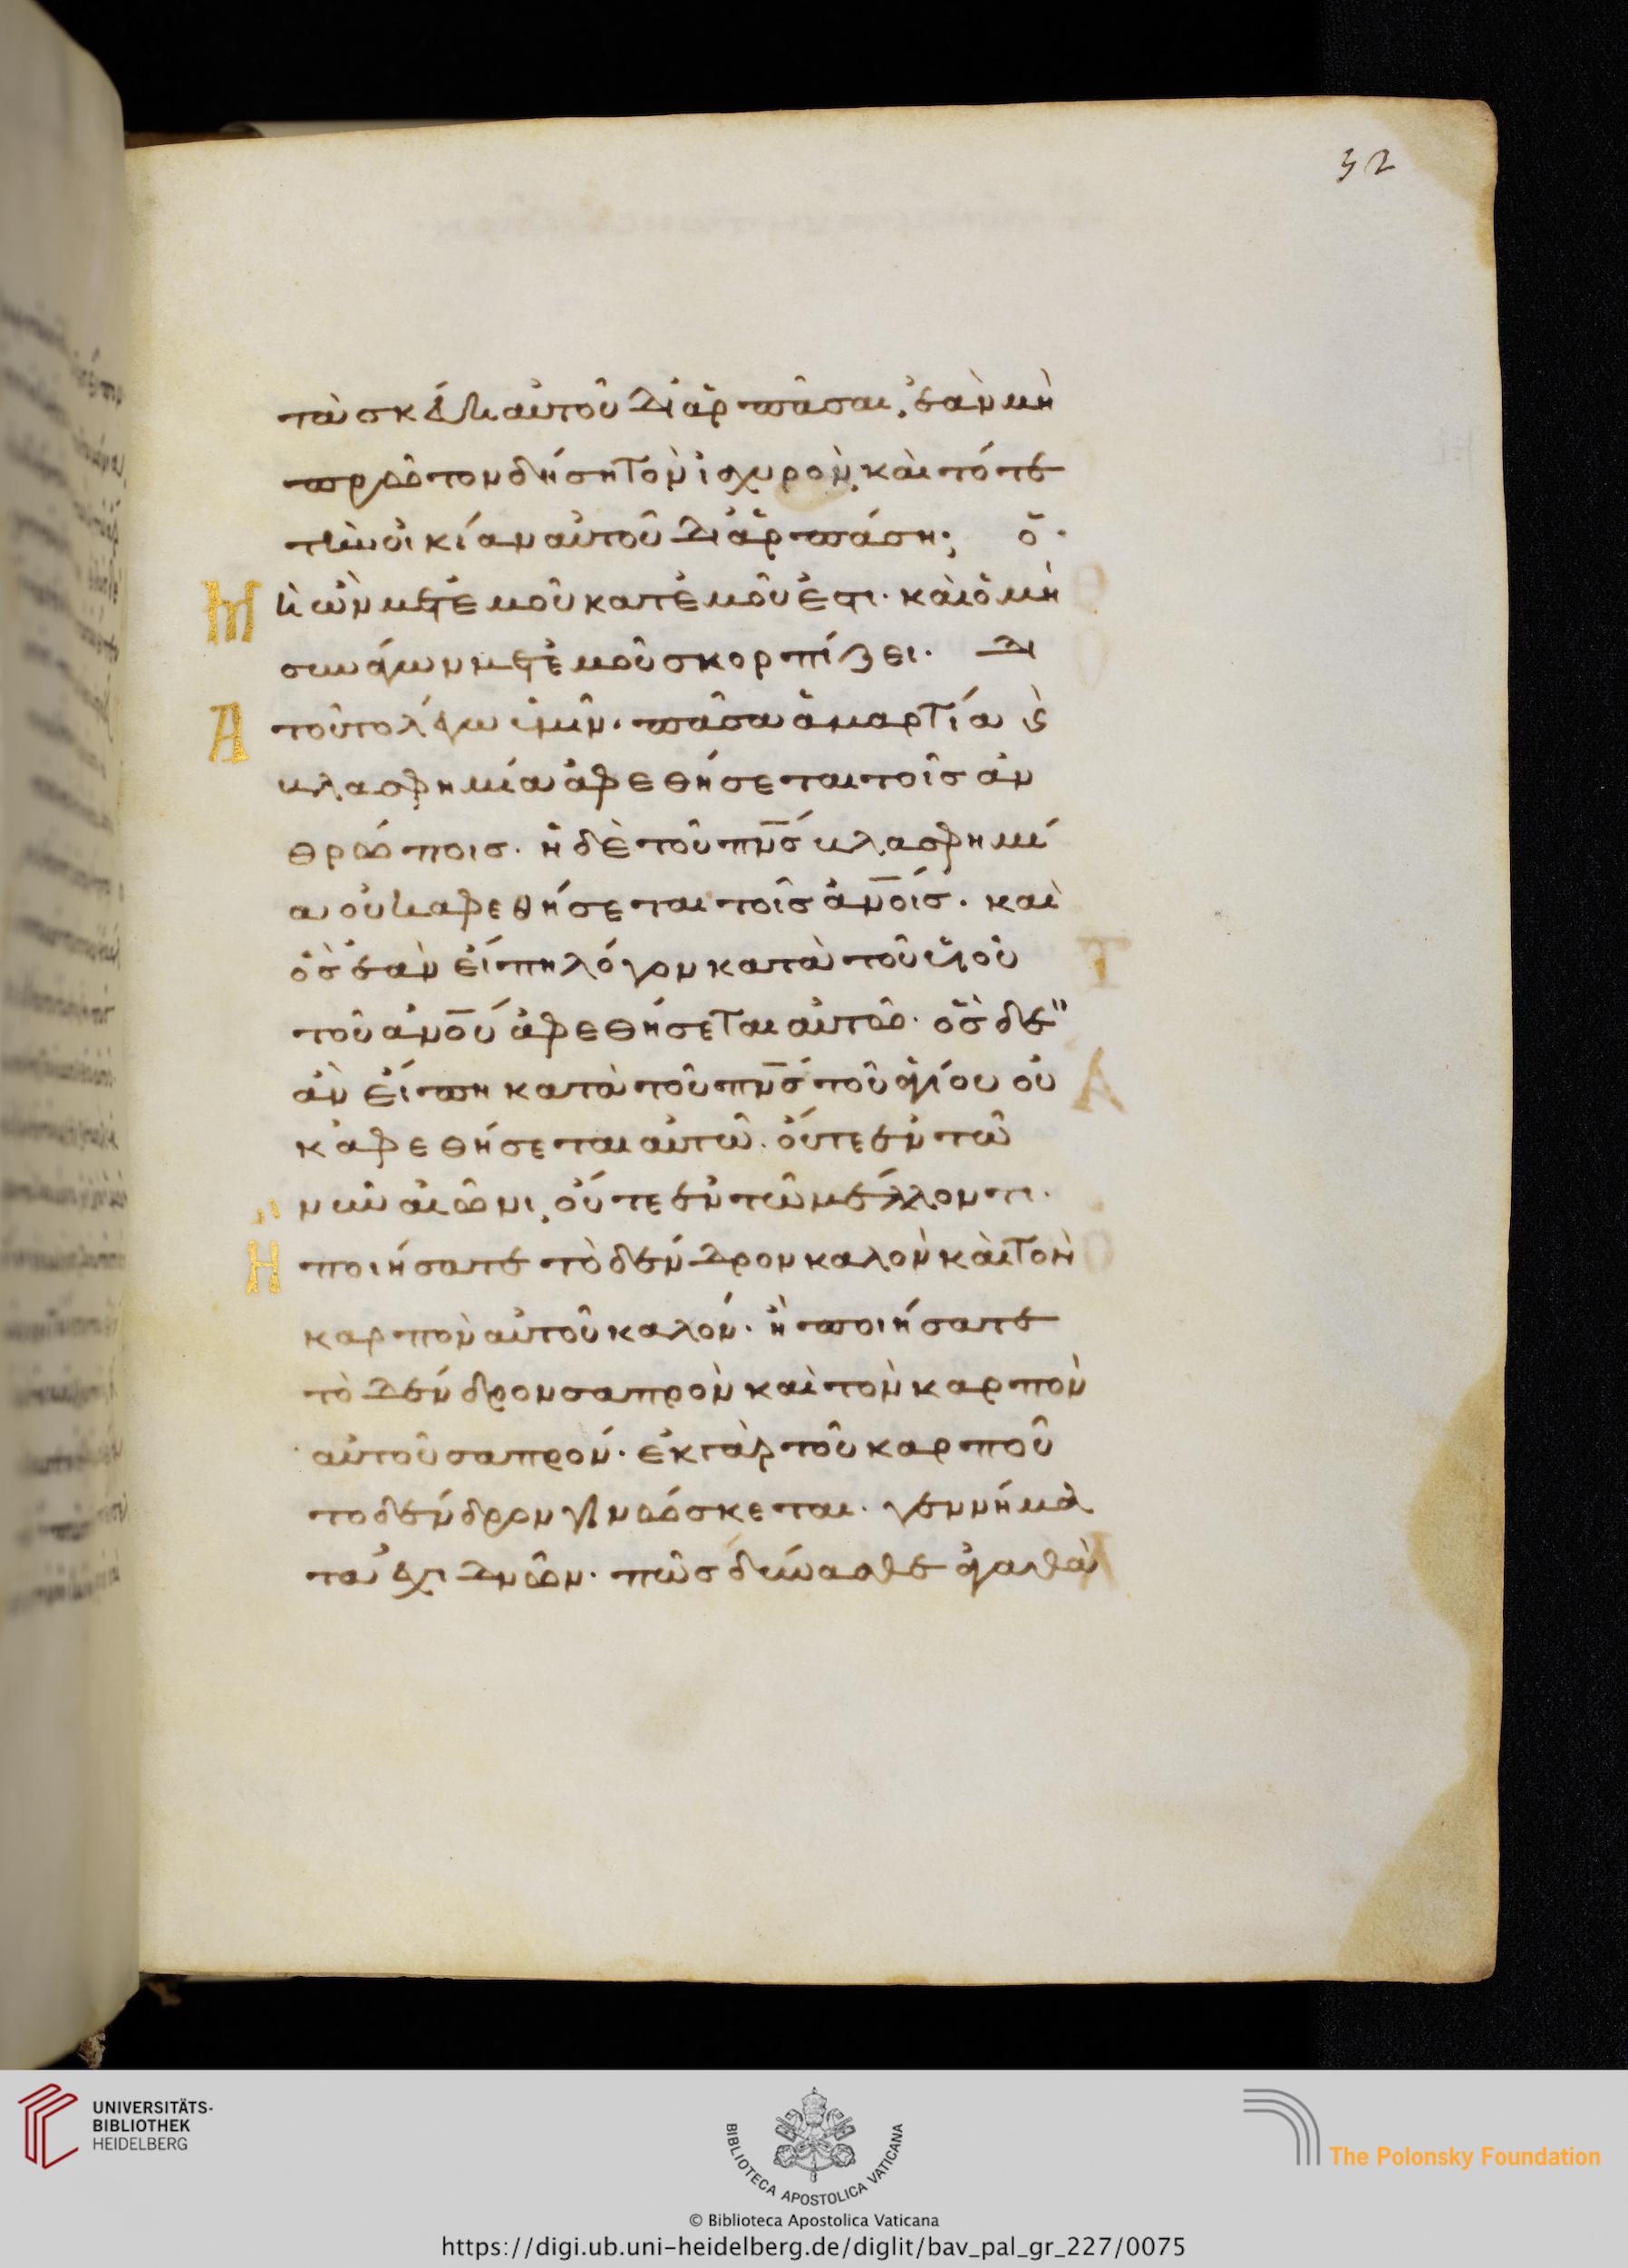 32
τὰ σκεύη αὐτοῦ διαρπᾶσαι, ἐὰν μὴ
πρῶτον δήση τὸν ἰσχυρὸν, καὶ τότε
τὴν οἰκίαν αὐτοῦ διαρπάση; ὁ·
Μ ὴ ὢν μετ᾽ ἐμοῦ κατ᾽ ἐμοῦ ἐστι· καὶ ὁ μὴ
συνάγων μετ᾽ ἐμοῦ σκορπίζει· Δι
Α τοῦτο λέγω ὑμῖν· πᾶσα ἁμαρτία ϗ
βλασφημία ἀφεθήσεται τοῖς ἀν
θρώποις· ἡ δὲ τοῦ πν̅ς βλασφημί
α οὐκ ἀφεθήσεται τοῖς ἀν̅οις· καὶ
ὃς ἐὰν εἴπη λόγον κατὰ τοῦ υἱοῦ
τοῦ ἀν̅ου ἀφεθήσεται αὐτῶ· ὃς δ᾽
ἂν εἴπη κατὰ τοῦ πν̅ς τοῦ ἁγίου οὐ
κ ἀφεθήσεται αὐτῶ· οὔτε ἐν τῶ
νῦν αἰῶνι, οὔτε ἐν τῶ μέλλοντι·
Η ποιήσατε τὸ δένδρον καλὸν καὶ τὸν
καρπὸν αὐτοῦ καλόν· ἢ ποιήσατε
τὸ δένδρον σαπρὸν καὶ τὸν καρπὸν
αὐτοῦ σαπρόν· ἐκ γὰρ τοῦ καρποῦ
το δένδρον γινώσκεται· γεννήμα
τα ἐχιδνῶν· πῶς δύνασθε ἀγαθὰ
UNIVERSITÄTS-
BIBLIOTHEK
HEIDELBERG
BIBLIOTECA APOSTOLICA VATICANA
The Polonsky Foundation
© Biblioteca Apostolica Vaticana
https://digi.ub.uni-heidelberg.de/diglit/bav_pal_gr_227/0075